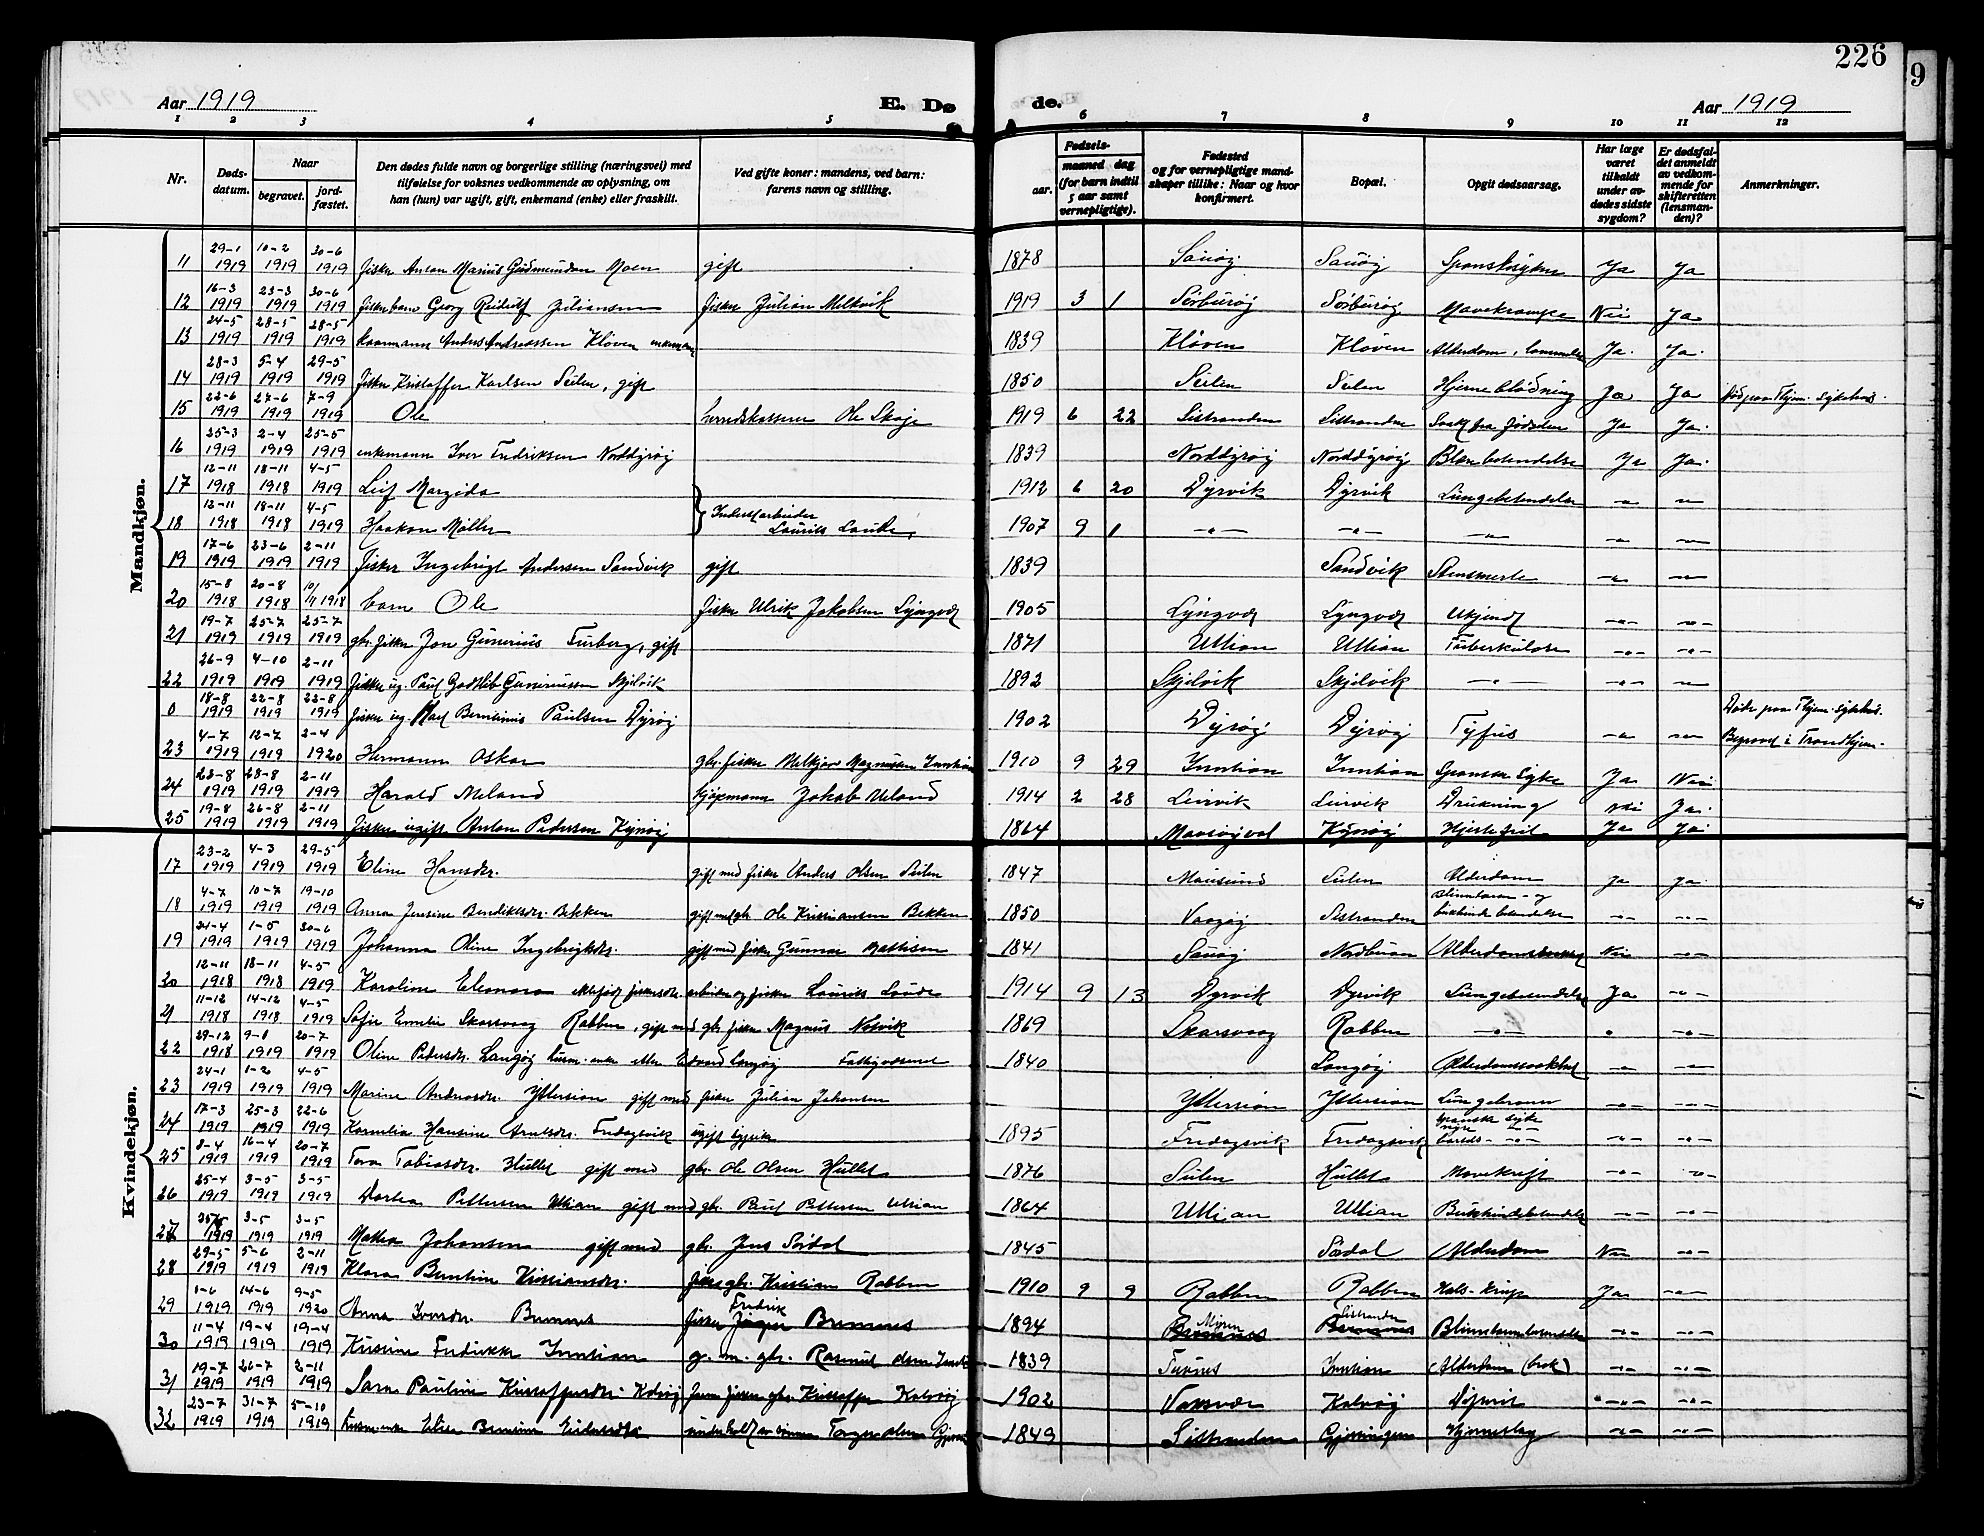 226
9
Aar 1919 E. Dø de. Aar 1919
1 2 3 4 5 6 7 8 9 10 11 12
Nr.
Døds-datum.
Naar
begravet.
jord-fæstet.
Den dødes fulde navn og borgerlige stilling (næringsvei) med
tilføielse for voksnes vedkommende av oplysning, om
han (hun) var ugift, gift, enkemand (enke) eller fraskilt.
Ved gifte koner: mandens, ved barn:
farens navn og stilling.
Fødsels-
aar.
maaned dag
(for barn indtil
5 aar samt
vernepligtige).
Fødested
og for vernepligtige mand-
skaper tillike: Naar og hvor
konfirmert.
Bopæl.
Opgit dødsaarsag.
Har læge
været
tilkaldt
under av-
dødes sidste
sygdom?
Er dødsfal-
det anmeldt
av vedkom-
mende for
skifteretten
(lensman-
den)?
Anmerkninger.
Mandkjøn.
11 29-1 1919 10-2 1919 30-6 1919 fisker Anton Marius Gudmundsen Moen gift 1878 Sauøy Sauøy Spansksyken Ja Ja
12 16-3 1919 23-3 1919 30-6 1919 fiskerbarn Georg Rudolf Juliansen fisker Julian Melkvik 1919 3 1 Sørburøy Sørburøy Mavekrampe Nei Ja
13 24-5 1919 28-5 1919 28-5 1919 Anders Andreassen Kløven enkemann 1839 Kløven Kløven Alderdom, Ja. Ja.
14 28-3 1919 5-4 1919 29-5 1919 fisker Kristoffer Karlsen Seilen, gift 1850 Seilen Sulen Hjerneblødning Ja Ja Død paa Thjem. Sykehus.
15 22-6 1919 27-6 1919 7-9 1919 Ole herredskasserer Ole Skaje 1919 6 22 Sistranden Sistranden Svak fra fødselen Ja Ja.
16 25-3 1919 2-4 1919 25-5 1919 enkemann Iver Fredriksen Norddyrøy 1839 Norddyrøy Norddyrøy Blærebetendelse Ja Ja.
17 12-11 1918 18-11 1918 4-5 1919 Leif Margido 1912 6 20 Dyrvik Dyrvik Lungebetendelse -"- -"-
18 12-11 1918 18-11 1918 4-5 1919 Haakon Møller } Laurits Laude 1907 9 1 -"- -"- -"- -"- -"-
19 17-6 1919 23-6 1919 2-11 1919 fisker Ingebrigt Andersen Sandvik gift 1839 Sandvik Stensmerte -"- -"-
20 15-8 1918 20-8 1918 10/11 1918 barn Ole fisker Ulrik Jakobsen Lyngvær 1905 Lyngvær Lyngvær Ukjendt -"- -"-
21 19-7 1919 25-7 1919 25-7 1919 gbr. fisker Jon Gunerius Furberg, gift 1871 Uttian Uttian Tuberkulose -"- -"-
22 26-9 1919 4-10 1919 2-11 1919 fisker ug. Paul Godtlib Guneriussen Skjelvik 1892 Skjelvik Skjelvik -"- -"- -"-
0 18-8 1919 22-8 1919 22-8 1919 fisker ug. Karl Berntinius Paulsen Dyrøy 1902 Dyrøy Dyrøy Tyfus -"- -"- Døde paa Thjem. sykehus. Begravd i Trondhjem.
23 4-7 1919 12-7 1919 2-4 1920 Hermann Oskar gbr. fisker Melkjor Magnussen Inntian 1910 9 29 Inntian Inntian Spanske Syke Ja Nei
24 23-8 1919 28-8 1919 2-11 1919 Harald Meland kjøpmann Jakob Meland 1914 2 28 Leirvik Leirvik Drukning Nei Ja.
25 19-8 1919 26-8 1919 2-11 1919 fisker ugift Anton Pedersen Kyrøy 1864 Mausøyval Kyrøy Hjertefeil Ja Ja.
Kvindekjøn.
17 23-2 1919 4-3 1919 29-5 1919 Eline Hansdr. gift med fisker Anders Olsen Sulen 1847 Mausund Sulen Alderdom Ja Ja.
18 4-7 1919 10-7 1919 19-10 1919 Anna Jensine Bendiktsdr. Bekken gift med gbr. Ole Kristiansen Bekken 1850 Vaagøy Sistranden Blindtarm- og bukhinde betendelse -"- -"-
19 24-4 1919 1-5 1919 30-6 1919 Johanna Oline Ingebrigtsdr. gift med fisker Gunnar Mathisen 1841 Sauøy Nordburøen Alderdomssvakhed Nei -"-
20 12-11 1918 18-11 1918 4-5 1919 Karoline Eleonora arbeider og fisker Laurits Laude 1914 9 13 Dyrvik Dyrvik Lungebetendelse Ja -"-
21 11-12 1918 14-12 1918 4-5 1919 Sofie Emelie Skarsvaag Rabben, gift med gbr. fisker Magnus Nesvik 1869 Skarsvaag Rabben -"- " -"-
22 29-12 1918 9-1 1919 20-7 1919 Oline Pedersdr. Langøy husm. enke etter Edvard Langøy Fattigvæsenet 1840 Langøy Alderdomssvakhet -"- -"-
23 24-1 1919 1-2 1919 4-5 1919 Marine Andreasdr. Yttersian gift med fisker Julian Johansen Yttersian Yttersian -"- -"-
24 17-3 1919 25-3 1919 22-6 1919 Kornelia Hansine Arntsdr. Fredagsvik ugift 1895 Fredagsvik Fredagsvik spanske syke -"- -"-
25 8-4 1919 16-4 1919 20-7 1919 Tora Tobiasdr. Hullet gift med gbr. Ole Olsen Hullet 1876 Sulen Hullet Mavekræft -"- -"-
26 25-4 1919 3-5 1919 3-5 1919 Dortea Pettersen Uttian gift med gbr. Paul Pettersen Uttian 1864 Uttian Uttian Bukhindebetendelse -"- -"-
27 1919 3-5 1919 3-5 1919 Mattea Johansen gift med gbr. Jens Sørdal 1845 Sørdal Alderdom Nei -"-
28 29-5 1919 5-6 1919 2-11 1919 Klara Berntine Kristiansdr. gbr. Kristian Rabben 1910 9 9 Rabben Rabben Hals-krup Ja -"-
29 1-6 1919 14-6 1919 9-5 1920 Anna Iversdr. Bremnes fisker Fredrik Bremnes 1894 Myren Sistranden Blindtarmbetendelse -"- -"-
30 11-4 1919 19-4 1919 19-4 1919 Kristine Fredrikke Inntian g. m. gbr. Rasmus Olsen Inntian 1839 Inntian Alderdom (brok) -"- -"-
31 19-7 1919 26-7 1919 2-11 1919 Sara Pauline Kristoffersdr. Kalvøy gbr. Kristoffer Kalvøy 1902 Kalvøy -"- -"-
32 23-7 1919 31-7 1919 5-10 1919 enke Elise underholdt av sønnen Torger Olsen 1849 Sistranden Gjerningen Hjerneslag -"- -"-